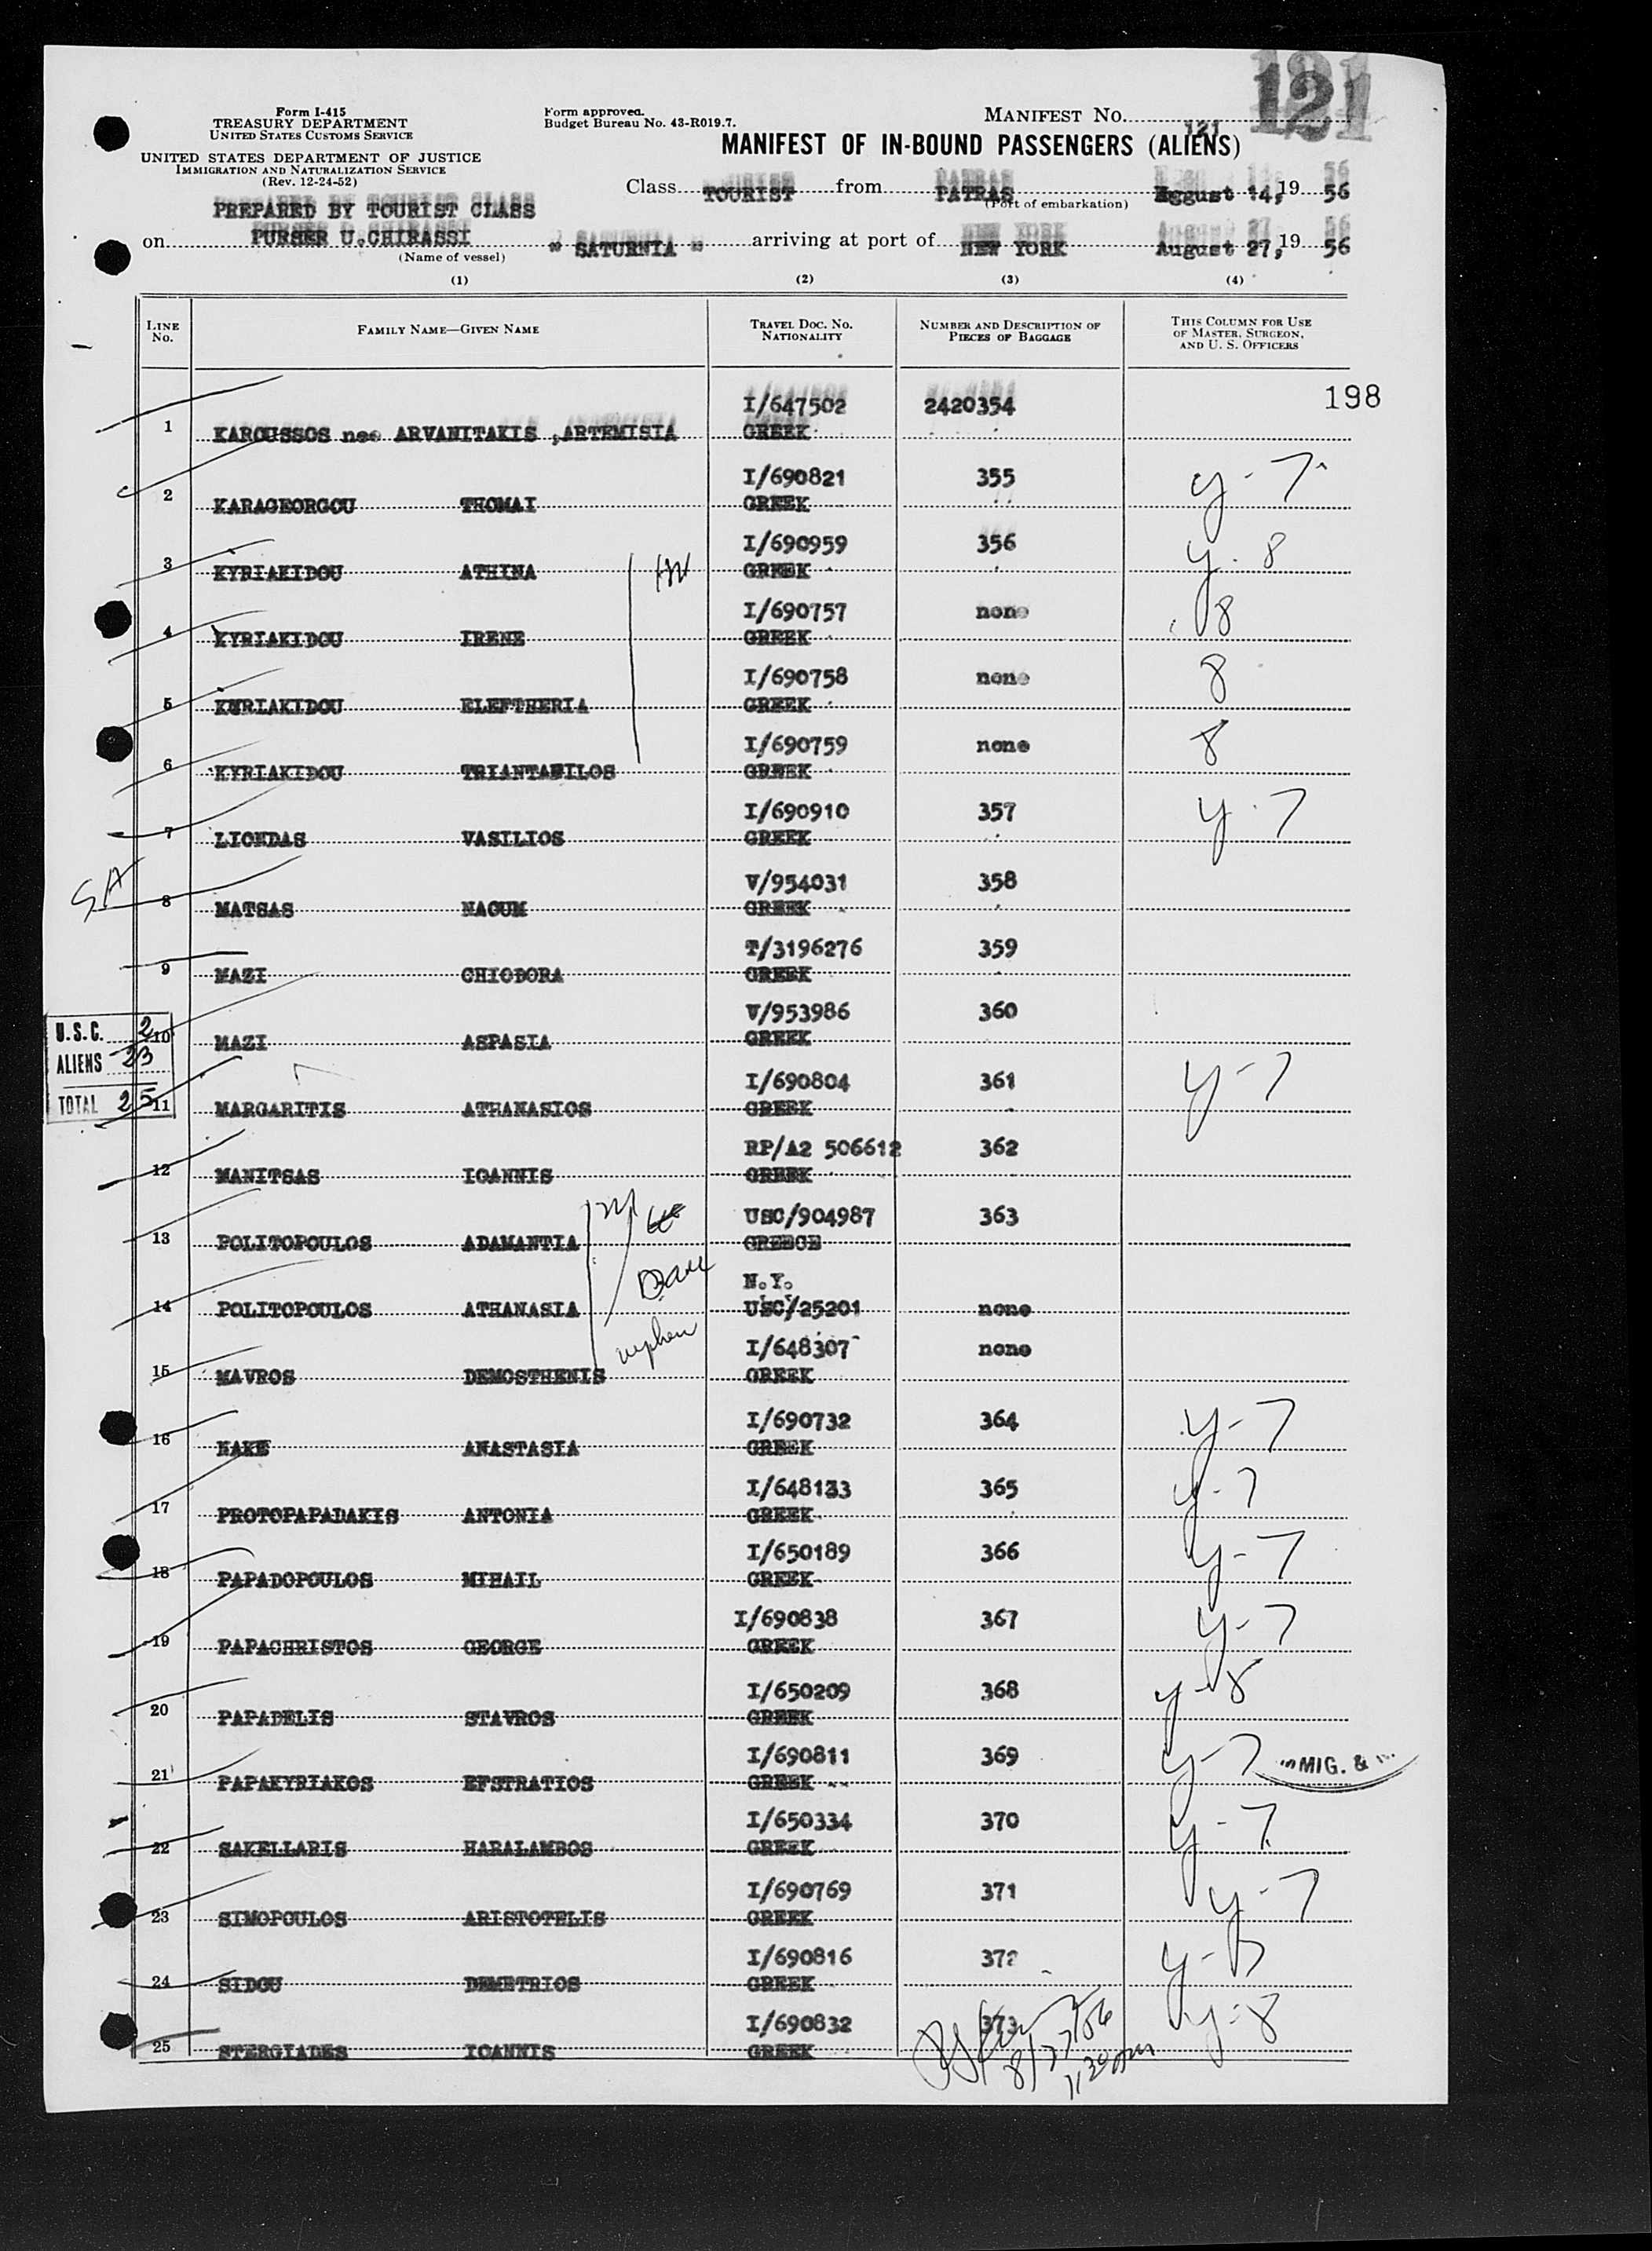 121
Form I-415
TREASURY DEPARTMENT
UNITED STATES CUSTOMS SERVICE
UNITED STATES DEPARTMENT OF JUSTICE
IMMIGRATION AND NATURALIZATION SERVICE
(Rev. 12-24-52)
Form approved.
Budget Bureau No. 43-R019.7.
MANIFEST NO. 121
MANIFEST OF IN-BOUND PASSENGERS (ALIENS)
Class TOURIST from PATRAS August 14, 19 56
(Port of embarkation)
PREPARED BY TOURIST CLASS
on PURSER U.CHIRASSI " SATURNIA " arriving at port of NEW YORK August 27, 19 56
(Name of vessel)
(1) (2) (3) (4)
LINE No. FAMILY NAME—GIVEN NAME TRAVEL DOC. NO. NATIONALITY NUMBER AND DESCRIPTION OF PIECES OF BAGGAGE THIS COLUMN FOR USE OF MASTER, SURGEON, AND U. S. OFFICERS
198
I/647502 2420354
1 KAROUSSOS nee ARVANITAKIS ,ARTEMISIA GREEK
I/690821 355 y-7
2 KARAGEORGOU THOMAI GREEK
I/690959 356 y-8
3 KYRIAKIDOU ATHINA GREEK
I/690757 none 8
4 KYRIAKIDOU IRENE GREEK
I/690758 none 8
5 KYRIAKIDOU ELEFTHERIA GREEK
I/690759 none 8
6 KYRIAKIDOU TRIANTAFILOS GREEK
I/690910 357 y-7
7 LIONDAS VASILIOS GREEK
SA
V/954031 358
8 MATSAS NAOUM GREEK
T/3196276 359
9 MAZI CHIODORA GREEK
V/953986 360
10 MAZI ASPASIA GREEK
U.S.C. 2
ALIENS 23
TOTAL 25
I/690804 361 y-7
11 MARGARITIS ATHANASIOS GREEK
RP/A2 506612 362
12 MANITSAS IOANNIS GREEK
USC/904987 363
13 POLITOPOULOS ADAMANTIA GREECE
N.Y.
14 POLITOPOULOS ATHANASIA USC/25201 none
nephew
I/648307 none
15 MAVROS DEMOSTHENIS GREEK
I/690732 364 y-7
16 NAKE ANASTASIA GREEK
I/648133 365 y-7
17 PROTOPAPADAKIS ANTONIA GREEK
I/650189 366 y-7
18 PAPADOPOULOS MIHAIL GREEK
I/690838 367 y-7
19 PAPACHRISTOS GEORGE GREEK
I/650209 368 y-8
20 PAPADELIS STAVROS GREEK
I/690811 369 y-7
MIG. &
21 PAPAKYRIAKOS EFSTRATIOS GREEK
I/650334 370 y-7
22 SAKELLARIS HARALAMBOS GREEK
I/690769 371 y-7
23 SIMOPOULOS ARISTOTELIS GREEK
I/690816 372
24 SIDOU DEMETRIOS GREEK
I/690832 373 y-8
25 STERGIADES IOANNIS GREEK
8/27/56